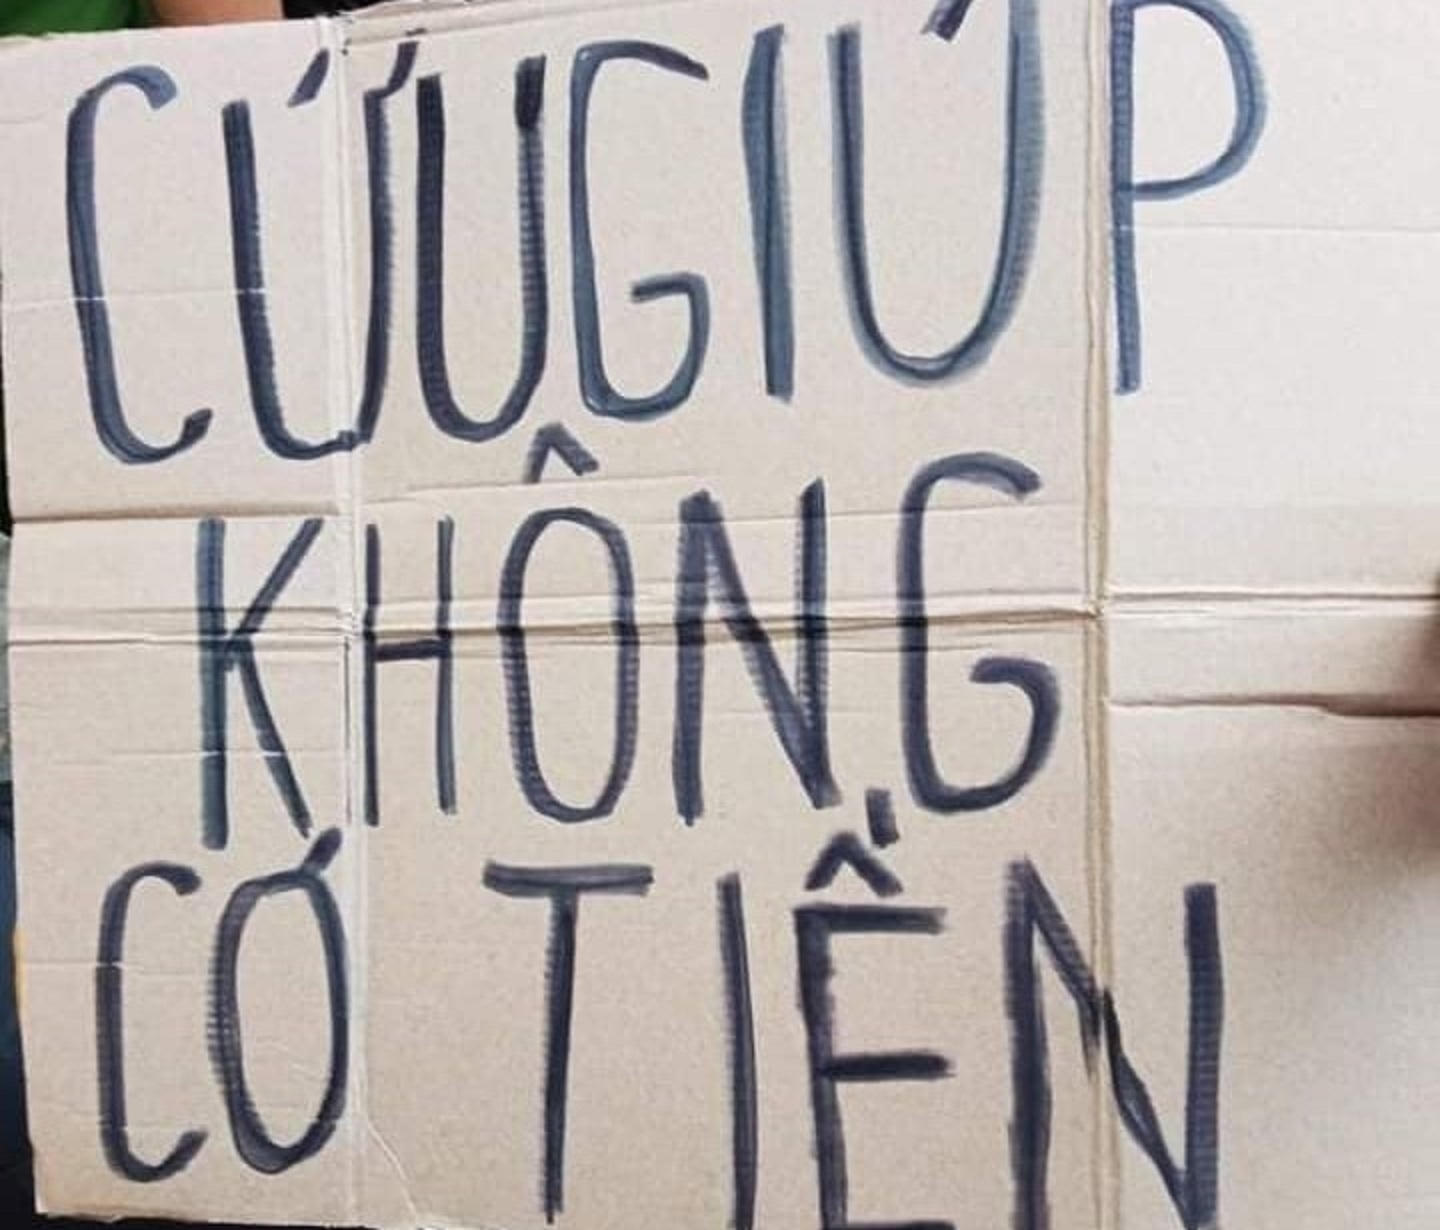 CỨU GIÚP
KHÔNG
CÓ TIỀN